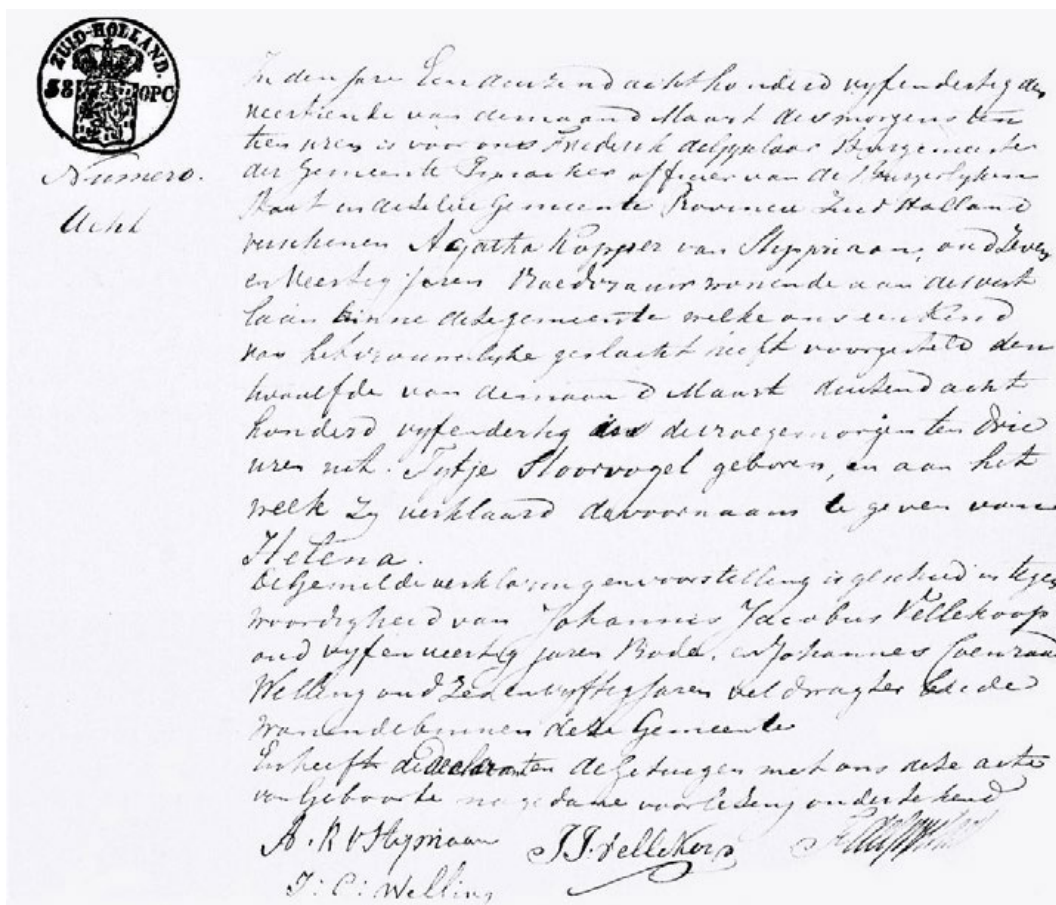 ZUID-HOLLAND.
38 OPC
Numero.
Acht
In den jare Een duizend acht honderd vyfendertig den
veertiende van de maand Maart des morgens ten
tien uren is voor ons Frederik Burgemeester
der Gemeente officier van de Burgerlyken
Staat in dezelve Gemeente Provincie Zuid Holland
verschenen Agatha van Stypriaan, oud Zeven
en Veertig jaren Vroedvrouw wonende aan de
laan binne deze gemeente welke ons een Kend
van het vrouwelyke geslacht heeft voorgesteld den
twaalfde van de maand Maart duizend acht
honderd vyfendertig des vroegemorgens ten Drie
uren uit Tytje Stoorvogel geboren, en aan het
welk Zy verklaard de voornaam te geven van
Helena.
De Gemelde verklaring en voorstelling is geschied in tegen
woordigheid van Johannes Jacobus Vellekoop
oud vyfenveertig jaren Bode. en Johannes Coenraad
Welling oud Zes en vyftig jaren veldwagter beide
wonende binnen deze Gemeente
En heeft de declarante en de getuigen met ons deze acte
van Geboorte na gedane voorlezing onderteekend
A. K v Stypriaan J J. Vellekoop
J: C: Welling